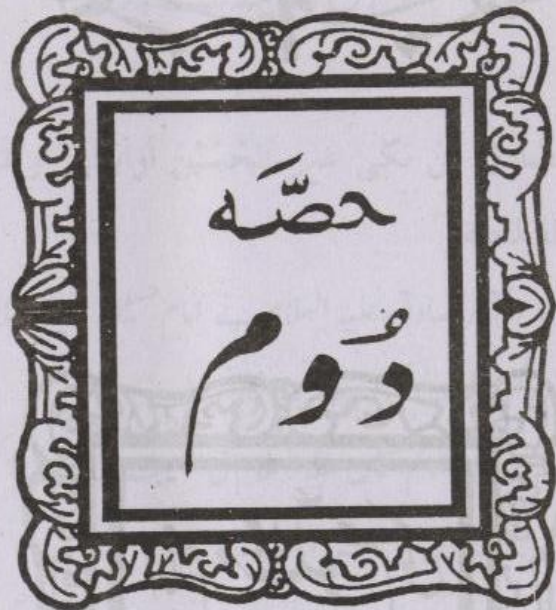 حصَّہ
دُوم